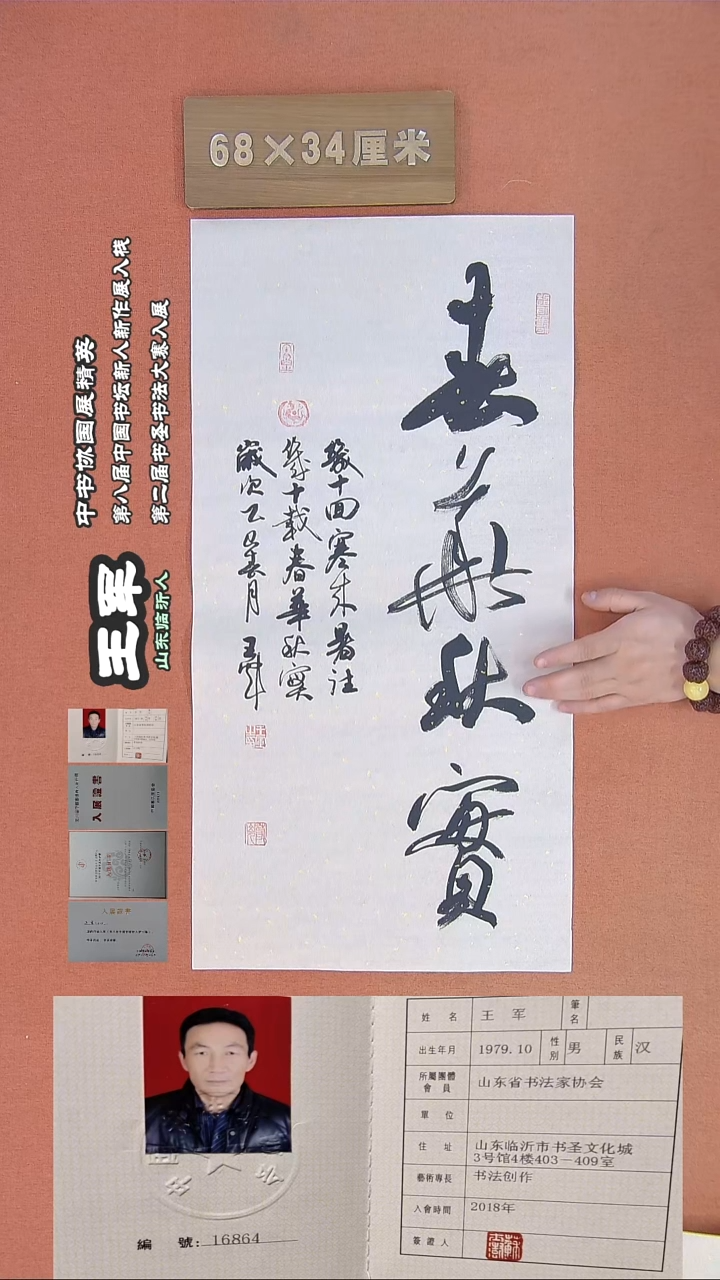 68×34厘米
春華秋實
幾十回寒来暑往
幾十載春華秋實
歲次乙巳春月 王军
中书协国展精英
第八届中国书坛新人新作展入展
第二届书圣书法大赛入展
王军
山东临沂人
入展證書
姓 名 王 军 筆名
出生年月 1979.10 性別 男 民族 汉
所屬團體會員 山东省书法家协会
單 位
住 址 山东临沂市书圣文化城
3号馆4楼403－409室
藝術專長 书法创作
入會時間 2018年
簽證人
編 號: 16864